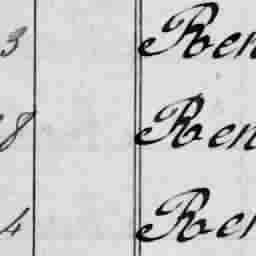 3 Ren
8 Ren
4 Ren